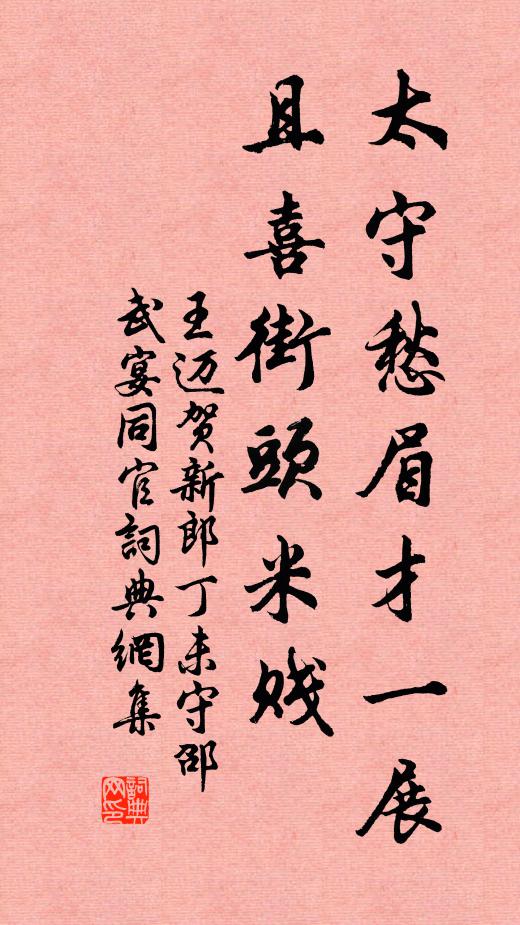 太守愁眉才一展
且喜街頭米贱
王迈贺新郎丁未守邵
武宴同官詞典網集
詞典
网印